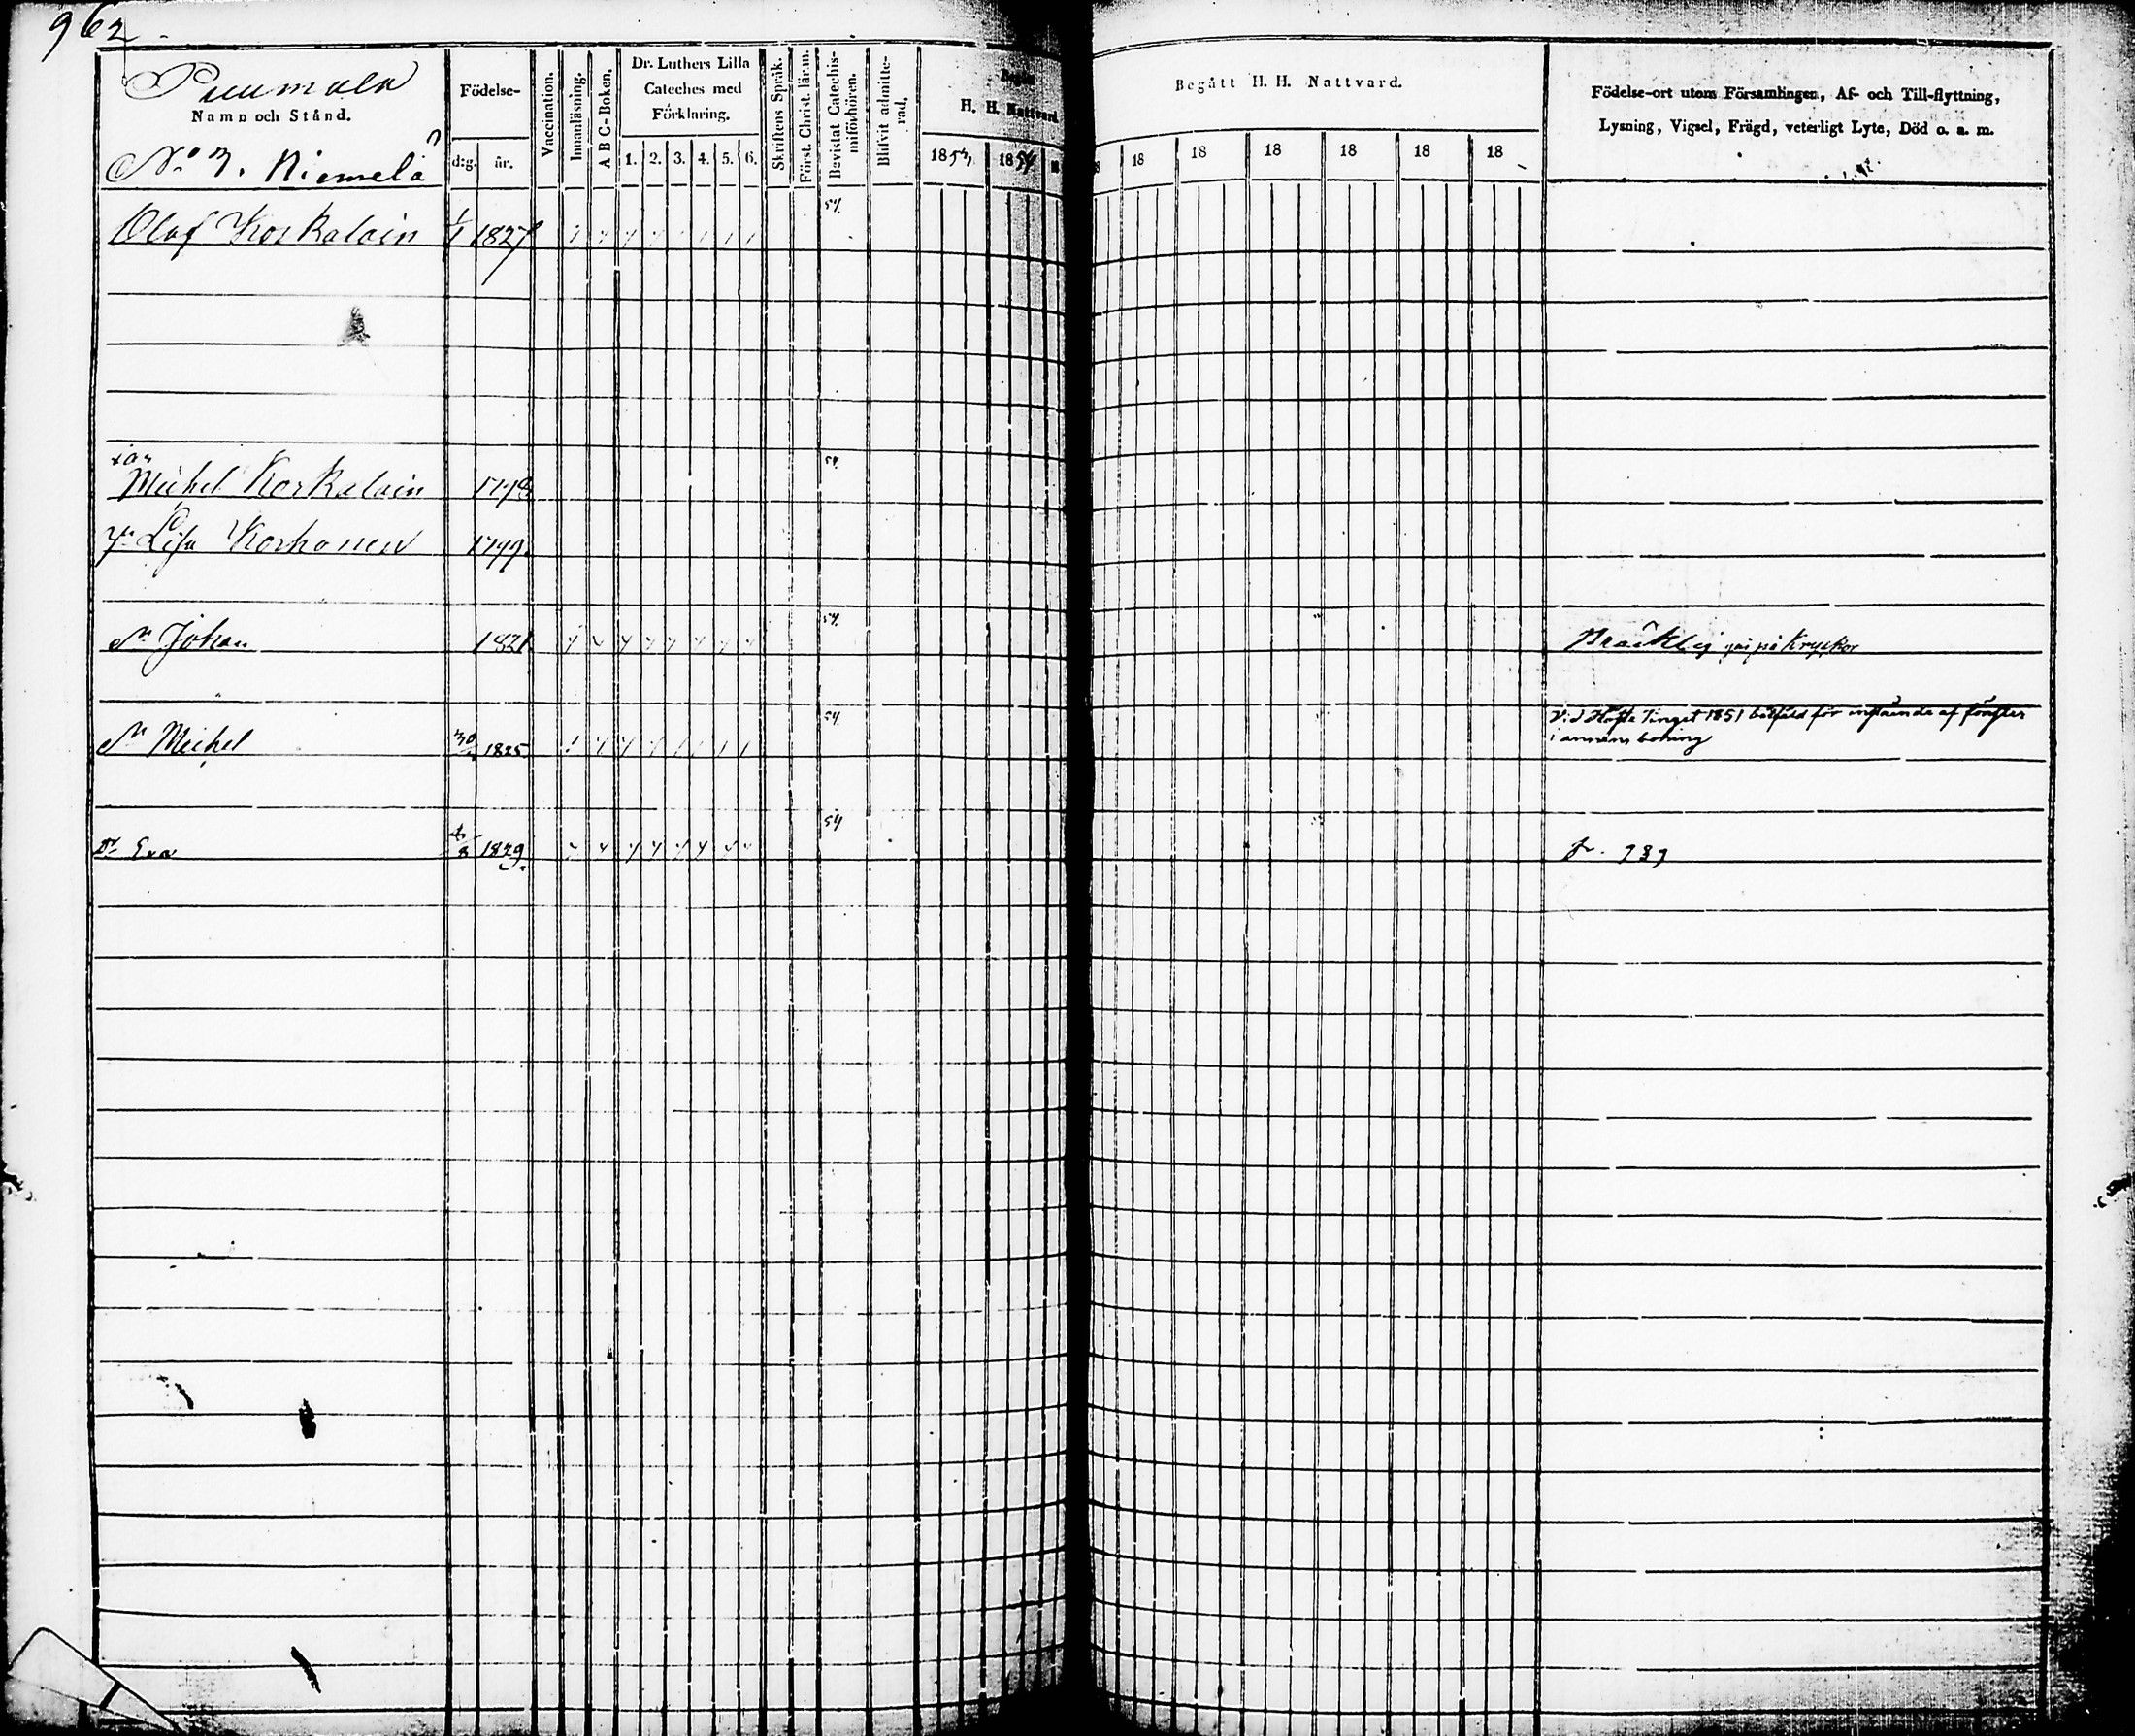 962
Puumala
Namn och Stånd.
No 3. Niemelä
Födelse-
d:g. år.
Vaccination.
Innanläsning.
A B C-Boken.
Dr. Luthers Lilla
Cateches med
Förklaring.
1. 2. 3. 4. 5. 6.
Skriftens Språk.
Först. Christ. lär:m.
Bevistat Catechis-
miförhören.
Blifvit admitte-
rad.
Begått
H. H. Nattvard
1853 1854
Begått H. H. Nattvard.
18 18 18 18 18 18
Födelse-ort utom Församlingen, Af- och Till-flyttning,
Lysning, Vigsel, Frägd, veterligt Lyte, Död o. s. m.
Olof Koskalain 1/1 1827 54
Michel Koskalain 1798 54
Lisa Korhonen 1799
Sn Johan 1821 54 Bräcklig på Kryckor
Sn Michel 30 1825 54 Vid Höste Tinget 1851 bötfäld för af fönster
i annans boning
Dr Eva 8 1829 54